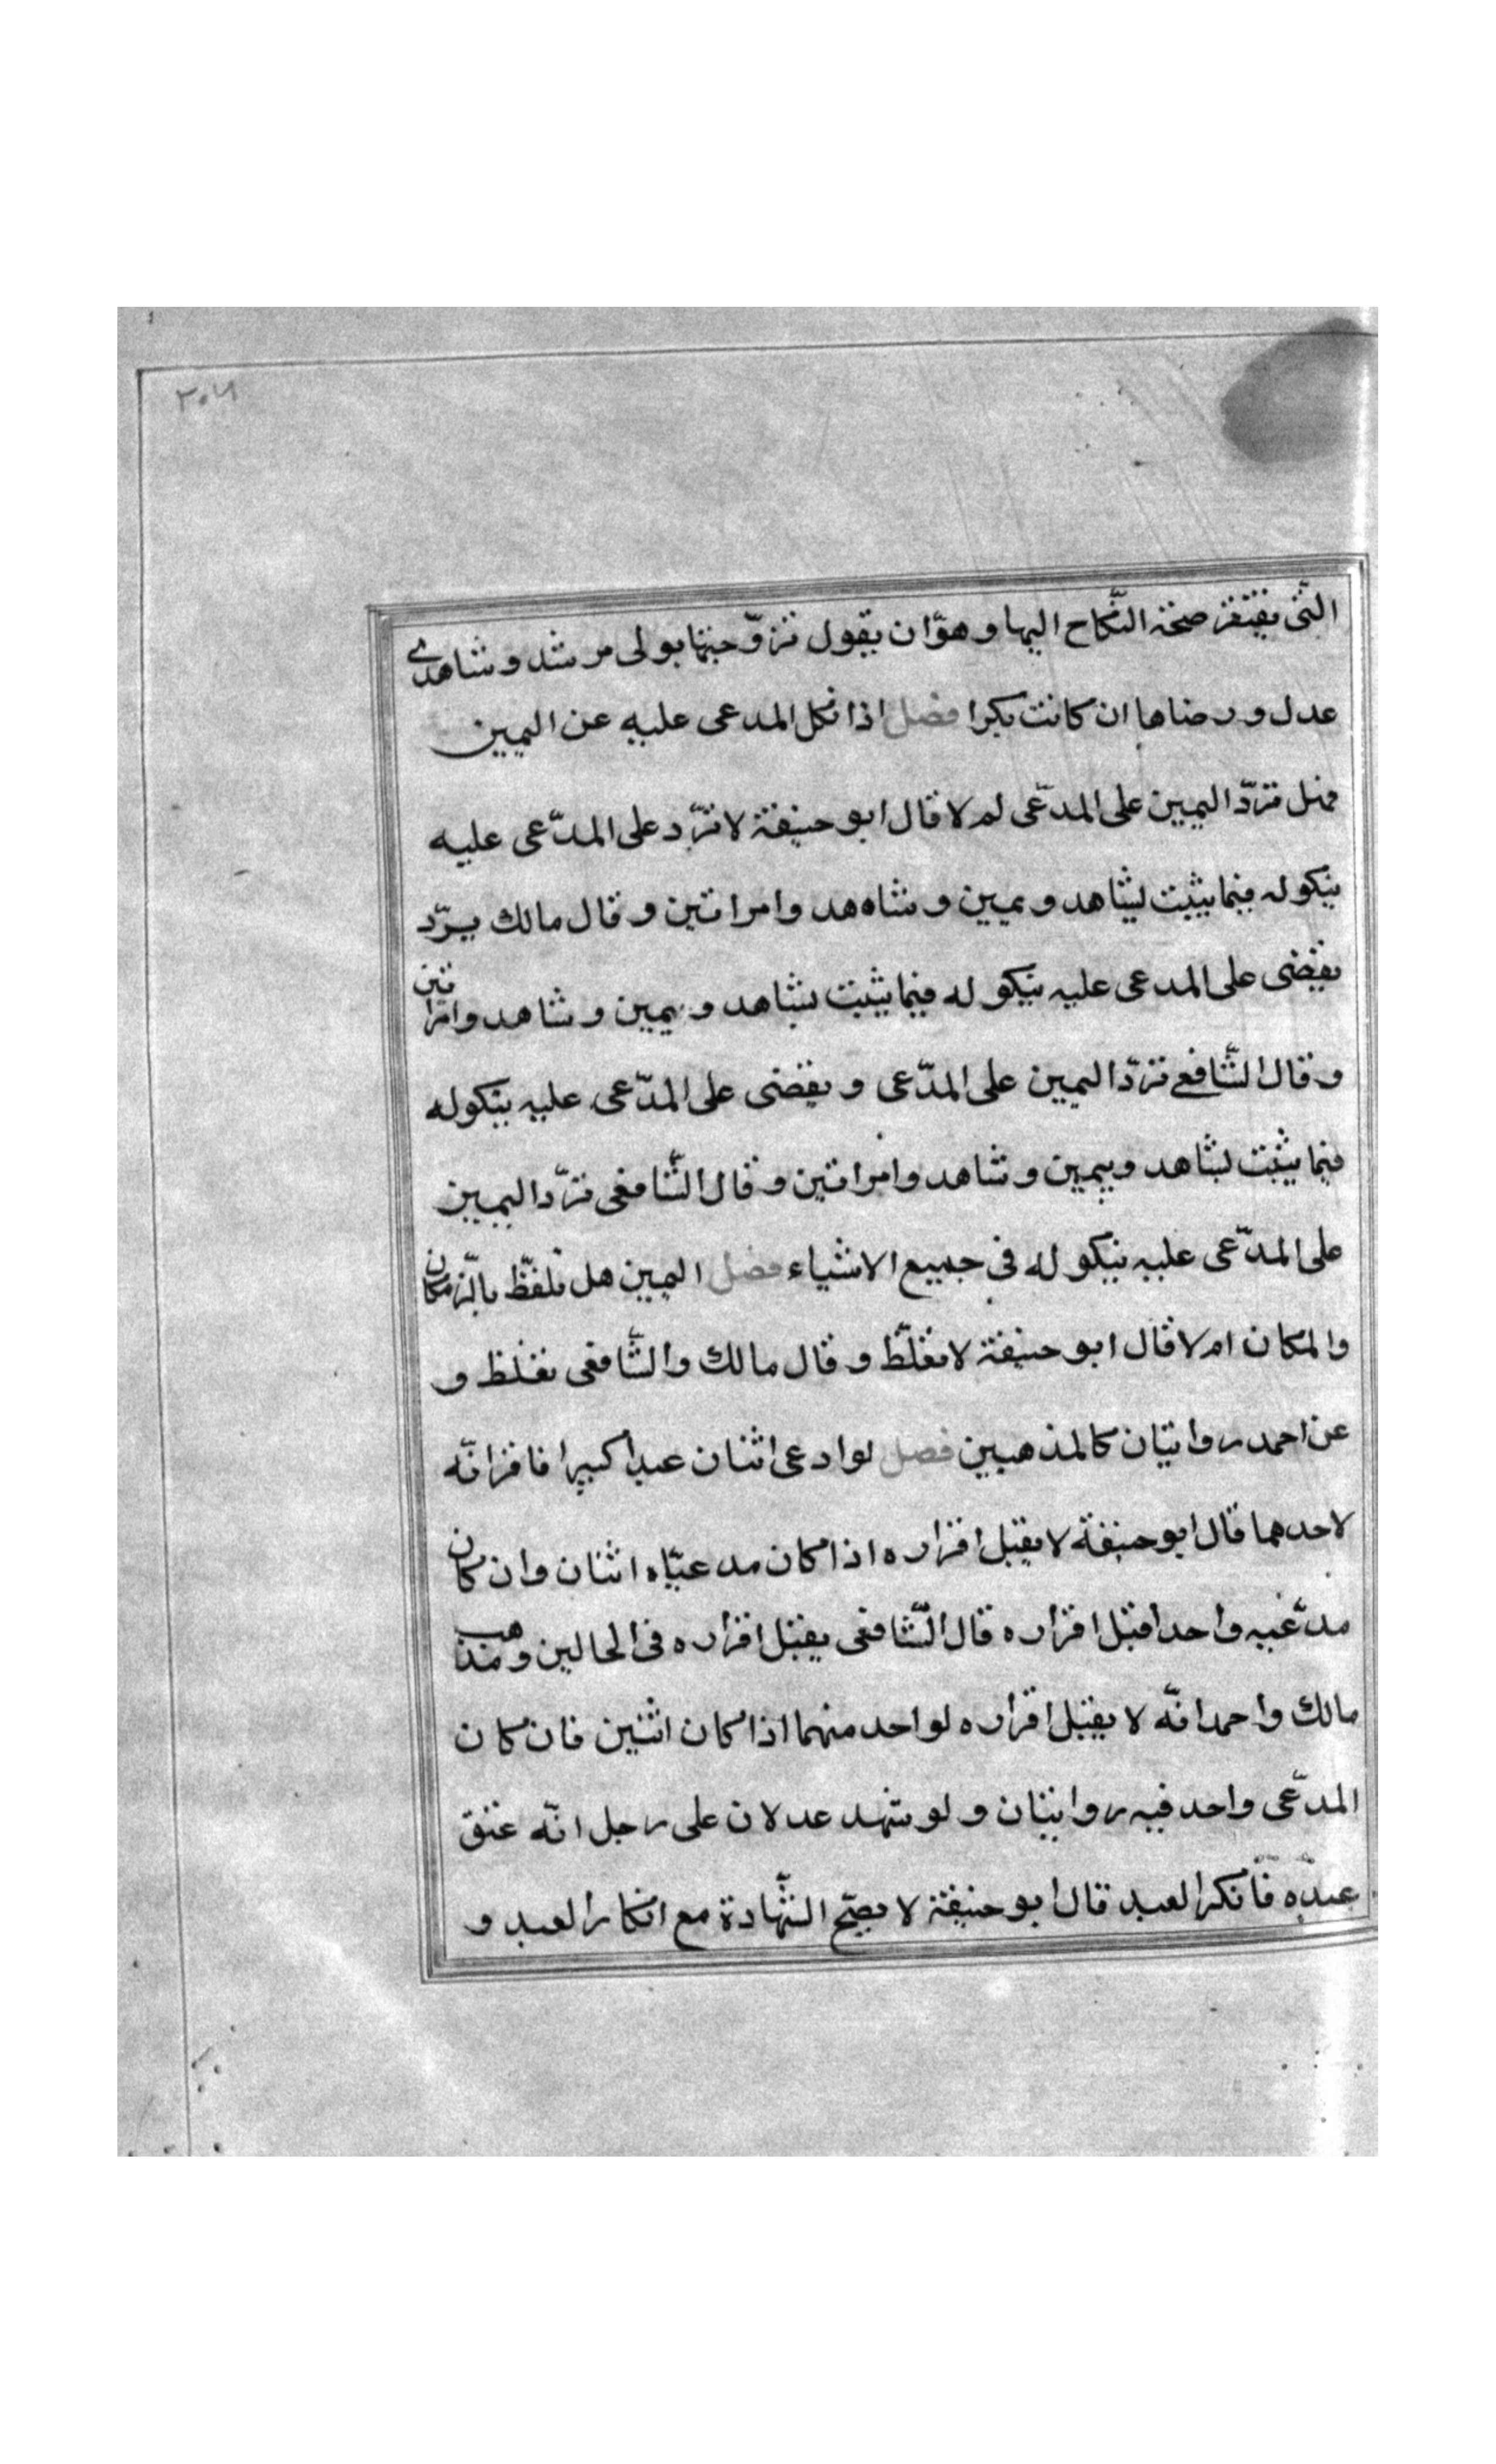 ٣٠٦
التّى يفتقر صحّة النّكاح اليها و هوّ ان يقول تزوّجتها بولى مرشد و شاهدى
عدل و رضاها ان كانت بكرا فصل اذا نكل المدعى عليه عن اليمين
فهل تردّ اليمين على المدّعى لم لا قال ابو حنيفة لا تردّ على المدّعى عليه
بنكوله فيما يثبت بشاهد و يمين و شاهد وامراتين و قال مالك يردّ
يقضى على المدعى عليه بنكوله فيما يثبت بشاهد و يمين و شاهد وامراتين
و قال الشّافعے تردّ اليمين على المدّعى و يقضى على المدّعى عليه بنكوله
فيما يثبت بشاهد و يمين و شاهد وامراتين و قال الشّافعى تردّ اليمين
على المدّعى عليه بنكوله فى جميع الاشياء فصل اليمين هل تلفظّ بالزّمان
والمكان ام لا قال ابو حنيفة لا تغلّظ و قال مالك والشّافعى تغلظ و
عن احمد روايتان كالمذهبين فصل لو ادعى اثنان عبدا كبيرا فاقر انّه
لاحدهما قال ابو حنيفة لا يقبل اقراره اذا كان مدعيّاه اثنان وان كان
مدّعيه واحدا قبل اقراره قال الشّافعى يقبل اقراره فى الحالين و مذهب
مالك واحمد انّه لا يقبل اقراره لواحد منهما اذا كان اثنين فان كان
المدّعى واحد فيه روايتان و لو شهد عدلان على رجل انّه عتق
عبده فأنكر العبد قال ابو حنيفة لا يصحّ الشّهادة مع انكار العبد و